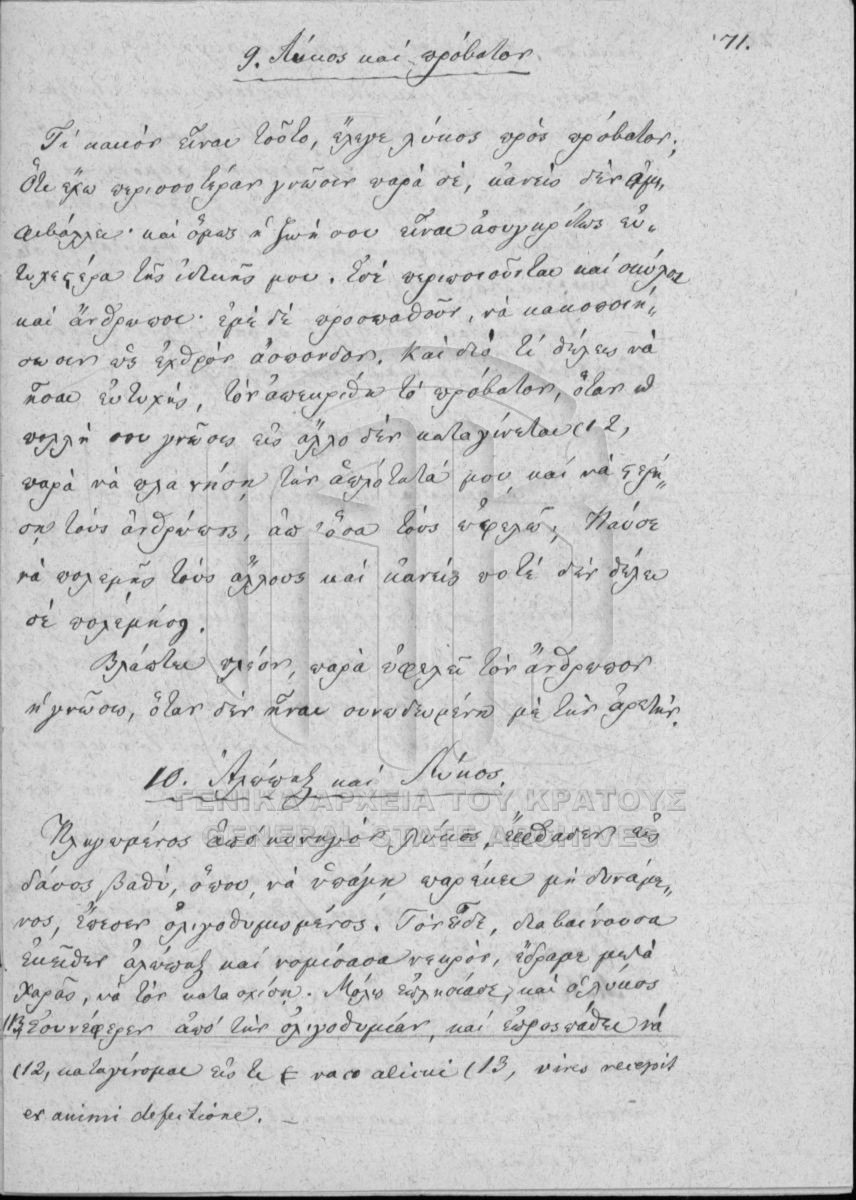 71.
9. Λύκος καί πρόβατον
Τί κακόν εἶναι τοῦτο, ἔλεγε λύκος πρός πρόβατον;
Ὅτι ἔχω περισσοτέραν γνῶσιν παρά σέ, κανείς δέν ἀμ-
φιβάλλει· καί ὅμως ἡ ζωή σου εἶναι ἀσυγκρίτως εὐ-
τυχεστέρα τῆς ἰδικῆς μου. Ἐσέ περιποιοῦνται καί σκύλοι
καί ἄνθρωποι· ἐμέ δέ προσπαθοῦν, νά κακοποιή-
σωσιν ὡς ἐχθρόν ἄσπονδον. Καί διά τί θέλεις νά
ἦσαι εὐτυχής, τόν ἀπεκρίθη τό πρόβατον, ὅταν ἡ
πολλή σου γνῶσις εἰς ἄλλο δέν καταγίνεται (12,
παρά νά πλανήσῃ τήν ἁπλότητά μου καί νά στερή-
σῃ τούς ἀνθρώπους, ἀπ' ὅσα τούς ὠφελῶ; Παῦσε
νά πολεμῇς τούς ἄλλους καί κανείς ποτέ δέν θέλει
σέ πολεμήσῃ.
Βλάπτει πλέον, παρά ὠφελεῖ τόν ἄνθρωπον
ἡ γνῶσις, ὅταν δέν ἦναι συνωδευμένη μέ τήν ἀρετήν.
10. Ἀλώπηξ καί Λύκος.
Πληγωμένος ἀπό κυνηγόν λύκος, ἔφθασεν εἰς
δάσος βαθύ, ὅπου, νά ὑπάγῃ παρέκει μή δυνάμε-
νος, ἔπεσεν ὀλιγοθυμισμένος. Τόν εἶδε, διαβαίνουσα
ἐκεῖθεν ἀλώπηξ καί νομίσασα νεκρόν, ἔδραμε μετά
χαρᾶς, νά τόν κατασχίσῃ. Μόλις ἐπλησίασε, καί ὁ λύκος
(13 ἐσυνέφερεν ἀπό τήν ὀλιγοθυμίαν, καί ἐπροσπάθει νά
(12, καταγίνομαι εἰς τι vaco alicui (13, vires recepit
ex animi defectione.
ΓΕΝΙΚΑ ΑΡΧΕΙΑ ΤΟΥ ΚΡΑΤΟΥΣ
GENERAL STATE ARCHIVES